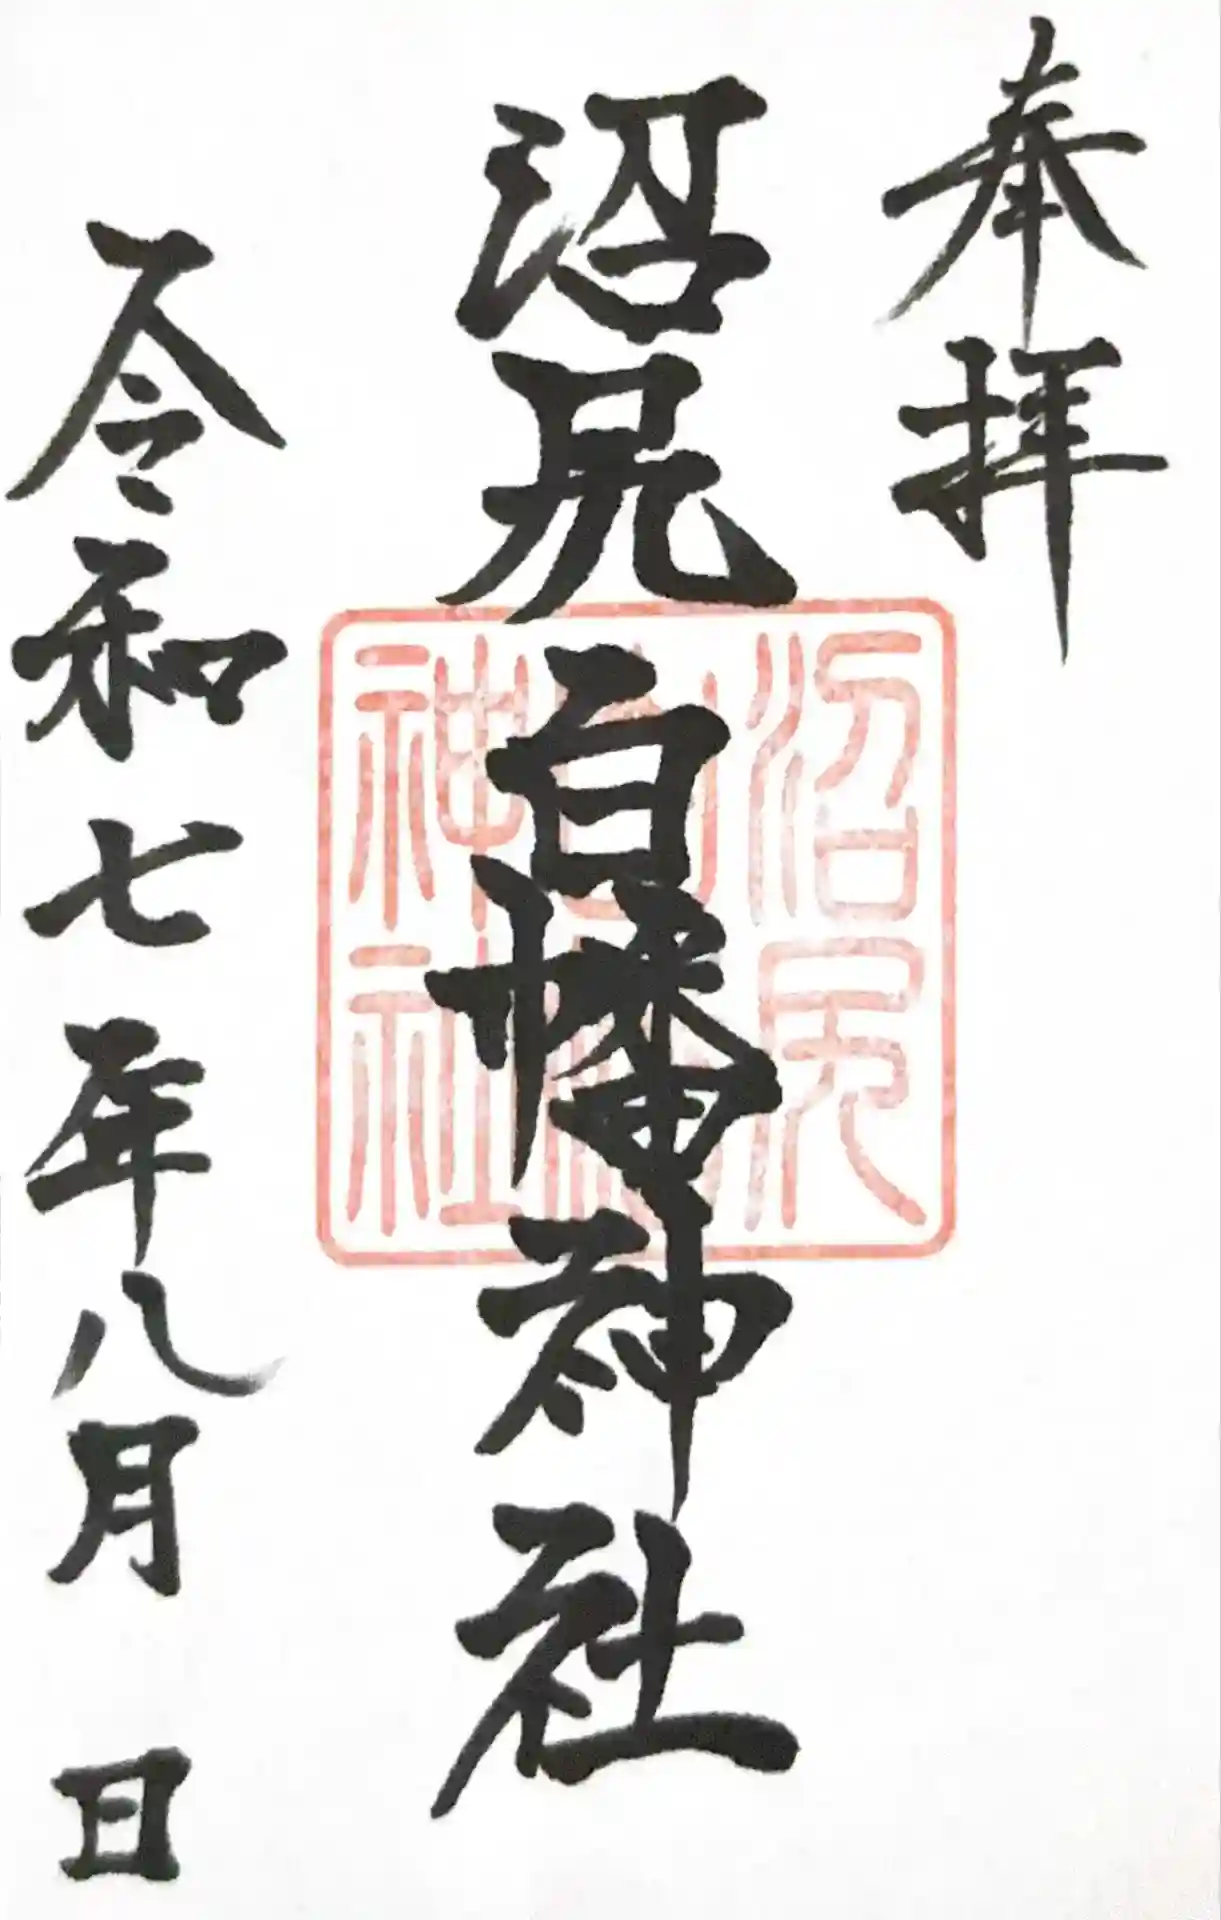 奉拝
沼尻白幡神社
沼尻
白幡
神社
令和七年八月 日